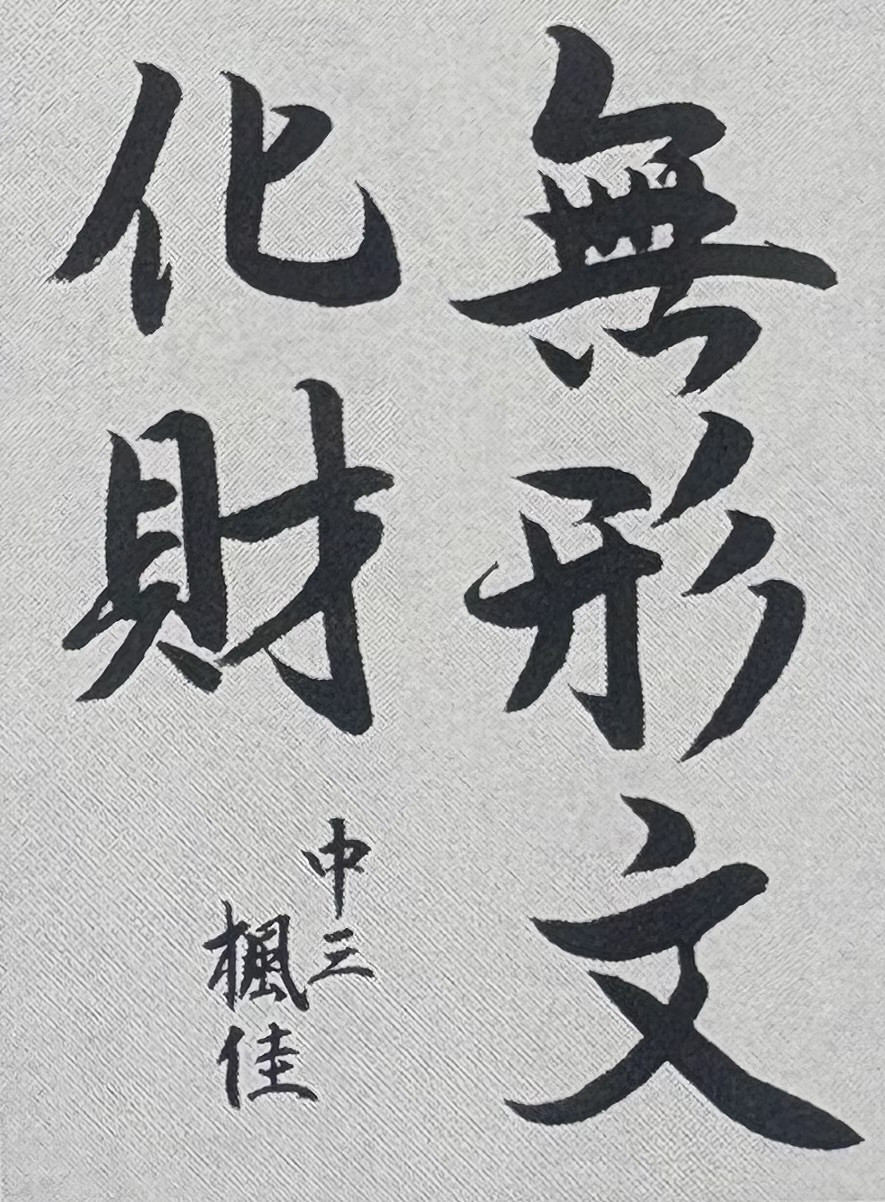 無形文
化財
中三
楓佳